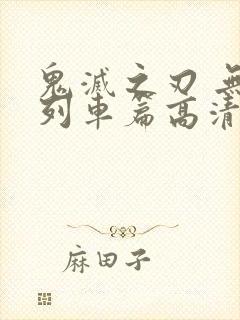 鬼滅之刃 無
列車篇高清
麻田子